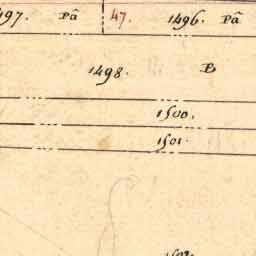 497. Pâ 47. 1496. Pâ
1498. B
1500.
1501.